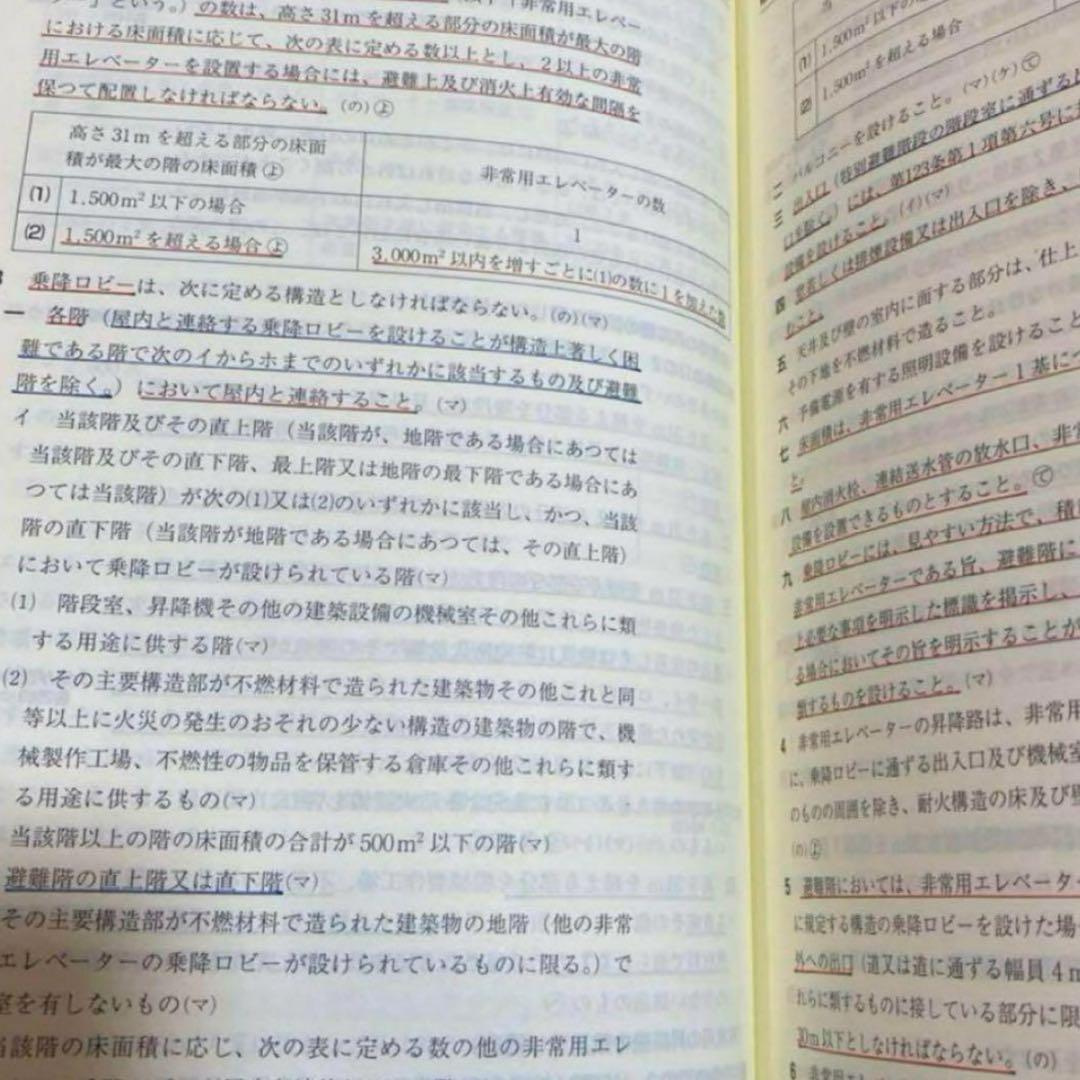 ター」という。)の数は、高さ31mを超える部分の床面積が最大の階
における床面積に応じて、次の表に定める数以上とし、2以上の非常
用エレベーターを設置する場合には、避難上及び消火上有効な間隔を
保つて配置しなければならない。(の)㋵
高さ31mを超える部分の床面
積が最大の階の床面積㋵
非常用エレベーターの数
(1) 1,500m²以下の場合
1
(2) 1,500m²を超える場合㋵
3,000m²以内を増すごとに(1)の数に1を加えた数
3 乗降ロビーは、次に定める構造としなければならない。(の)(マ)
一 各階(屋内と連絡する乗降ロビーを設けることが構造上著しく困
難である階で次のイからホまでのいずれかに該当するもの及び避難
階を除く。)において屋内と連絡すること。(マ)
イ 当該階及びその直上階(当該階が、地階である場合にあつては
当該階及びその直下階、最上階又は地階の最下階である場合にあ
つては当該階)が次の(1)又は(2)のいずれかに該当し、かつ、当該
階の直下階(当該階が地階である場合にあつては、その直上階)
において乗降ロビーが設けられている階(マ)
(1) 階段室、昇降機その他の建築設備の機械室その他これらに類
する用途に供する階(マ)
(2) その主要構造部が不燃材料で造られた建築物その他これと同
等以上に火災の発生のおそれの少ない構造の建築物の階で、機
械製作工場、不燃性の物品を保管する倉庫その他これらに類す
る用途に供するもの(マ)
当該階以上の階の床面積の合計が500m²以下の階(マ)
避難階の直上階又は直下階(マ)
その主要構造部が不燃材料で造られた建築物の地階(他の非常
エレベーターの乗降ロビーが設けられているものに限る。)で
室を有しないもの(マ)
当該階の床面積に応じ、次の表に定める数の他の非常用エレ
(1) 1,500m²以下の
(2) 1,500m²を超える場合
二 バルコニーを設けること。(マ)(ケ)㋢
三 出入口(特別避難階段の階段室に通ずる
口を除く。)には、第123条第1項第六号に
設備を設けること。(イ)(マ)
四 窓若しくは排煙設備又は出入口を除き、
むこと。
五 天井及び壁の室内に面する部分は、仕上
その下地を不燃材料で造ること。
六 予備電源を有する照明設備を設けること
七 床面積は、非常用エレベーター1基につ
と。
八 屋内消火栓、連結送水管の放水口、非常
設備を設置できるものとすること。㋢
九 乗降ロビーには、見やすい方法で、積
非常用エレベーターである旨、避難階に
上必要な事項を明示した標識を掲示し、
る場合においてその旨を明示することが
類するものを設けること。(マ)
4 非常用エレベーターの昇降路は、非常用
に、乗降ロビーに通ずる出入口及び機械室
のものの周囲を除き、耐火構造の床及び壁
(の)㋵
5 避難階においては、非常用エレベータ
に規定する構造の乗降ロビーを設けた場
外への出口(道又は道に通ずる幅員4m
れらに類するものに接している部分に限
30m以下としなければならない。(の)
6 非常用エレベー